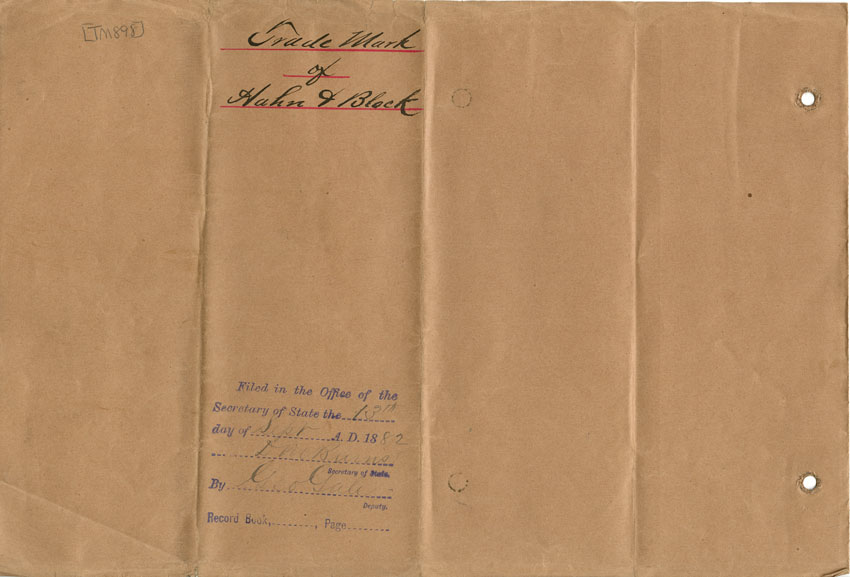 [TM898]
Trade Mark
of
Hahn & Block
Filed in the Office of the
Secretary of State the 13th
day of Sept A. D. 1882
Secretary of State.
By Geo
Deputy.
Record Book, , Page